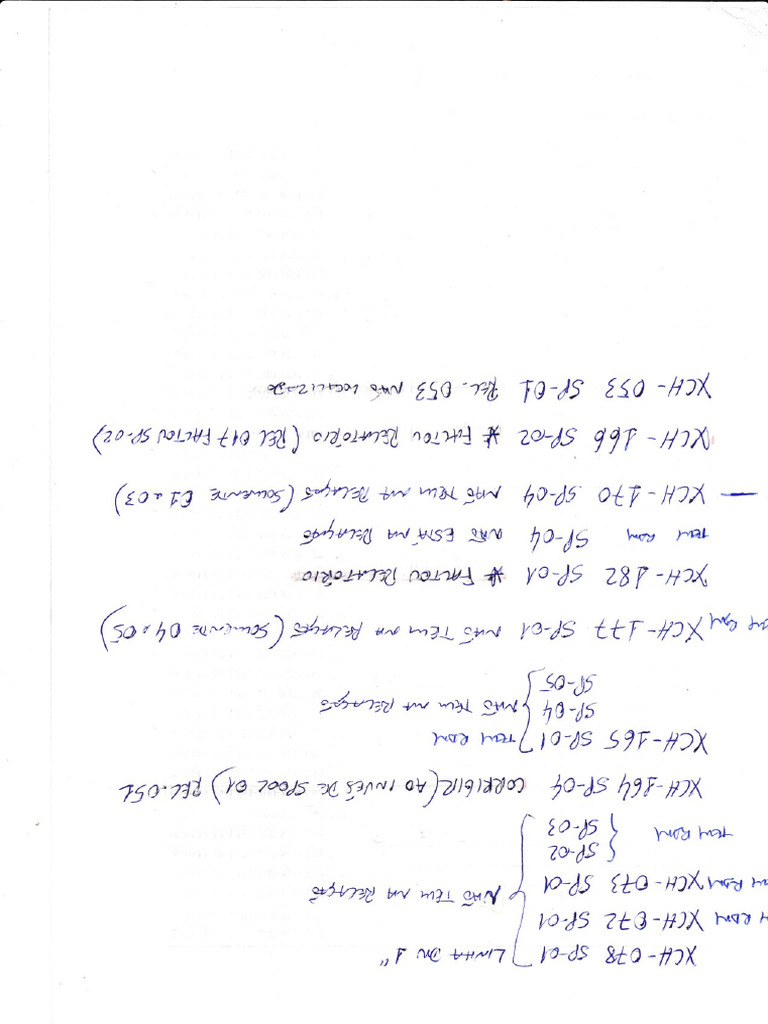 XCH-078 SP-01 LINHA DN 1"
TEM RDM XCH-072 SP-01
TEM RDM XCH-073 SP-01 NÃO TEM NA RELAÇÃO
SP-02
TEM RDM
SP-03
XCH-164 SP-04 CORRIGIR (AO INVÉS DE SPOOL 01) REL-051
XCH-165 SP-01 TEM RDM
SP-04 NÃO TEM NA RELAÇÃO
SP-05
TEM RDM XCH-177 SP-01 NÃO TEM NA RELAÇÃO (SOMENTE 04 e 05)
XCH-182 SP-01 * FALTOU RELATÓRIO
TEM RDM SP-04 NÃO ESTÁ NA RELAÇÃO
— XCH-170 SP-04 NÃO TEM NA RELAÇÃO (SOMENTE 01 a 03)
XCH-166 SP-02 * FALTOU RELATÓRIO (REL 017 FALTOU SP-02)
XCH-053 SP-01 REL. 053 NÃO LOCALIZADO